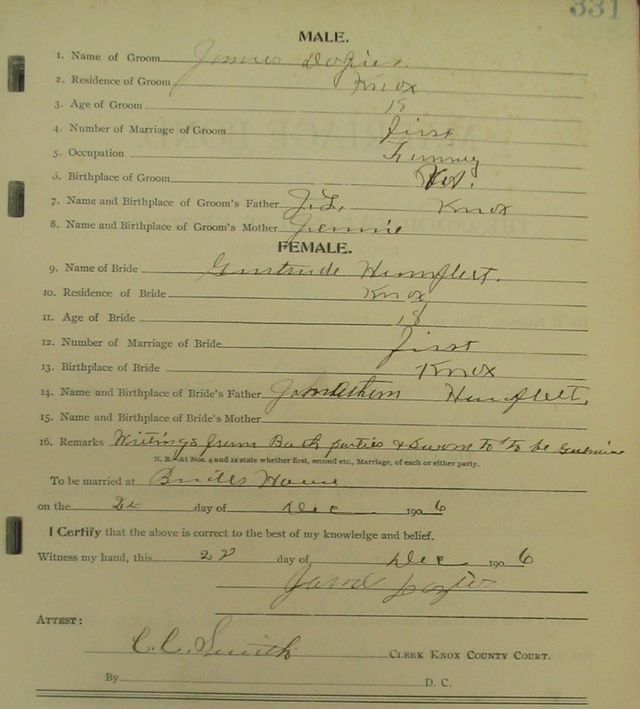 331
MALE.
1. Name of Groom James Dozier.
2. Residence of Groom Knox
3. Age of Groom 18
4. Number of Marriage of Groom first
5. Occupation
6. Birthplace of Groom
7. Name and Birthplace of Groom's Father J.L. Knox
8. Name and Birthplace of Groom's Mother Jennie
FEMALE.
9. Name of Bride Gertrude Humfleet.
10. Residence of Bride Knox
11. Age of Bride 18
12. Number of Marriage of Bride first
13. Birthplace of Bride Knox
14. Name and Birthplace of Bride's Father Humfleet.
15. Name and Birthplace of Bride's Mother
16. Remarks Writings from Both parties & Sworn to to be Genuine
N. B.—At Nos. 4 and 12 state whether first, second etc., Marriage, of each or either party.
To be married at Brides Home
on the day of Dec 1906
I Certify that the above is correct to the best of my knowledge and belief.
Witness my hand, this 22 day of Dec 1906
ATTEST:
C.C. Smith CLERK KNOX COUNTY COURT.
By D. C.